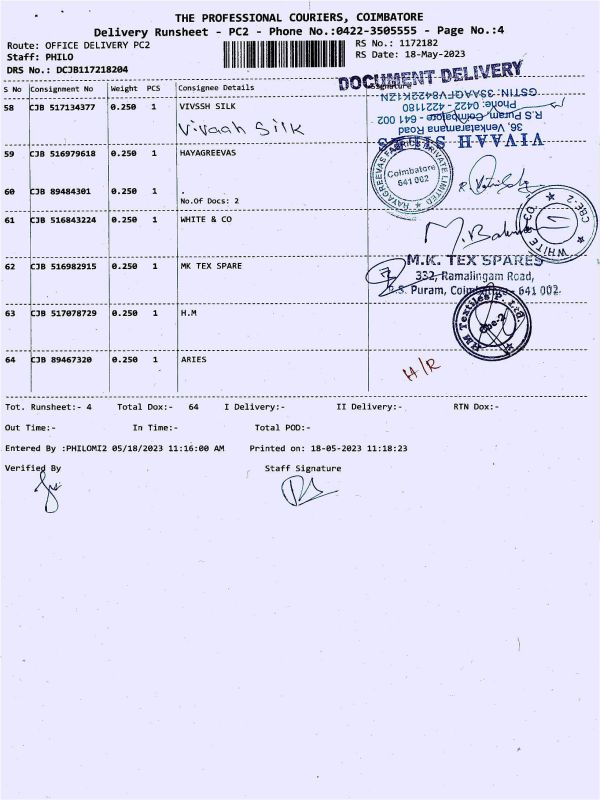 THE PROFESSIONAL COURIERS, COIMBATORE
Delivery Runsheet - PC2 - Phone No.:0422-3505555 - Page No.:4
Route: OFFICE DELIVERY PC2
RS No.: 1172182
Staff: PHILO
RS Date: 18-May-2023
DRS No.: DCJB117218204
DOCUMENT DELIVERY
S No Consignment No Weight PCS Consignee Details Signature
58 CJB 517134377 0.250 1 VIVSSH SILK
Vivaah Silk
VIVAAH SILKS
36, Venkataramana Road
R.S Puram, Coimbatore - 641 002
Phone: 0422- 4221180
GSTIN: 33AAQFV8422K1ZN
59 CJB 516979618 0.250 1 HAYAGREEVAS
HAYAGREEVAS FABRICS PRIVATE LIMITED
Coimbatore
641 002
60 CJB 89484301 0.250 1 .
No.Of Docs: 2
61 CJB 516843224 0.250 1 WHITE & CO
WHITE & CO. CBE-2
62 CJB 516982915 0.250 1 MK TEX SPARE
M.K. TEX SPARES
332, Ramalingam Road,
R.S. Puram, Coimbatore - 641 002.
63 CJB 517078729 0.250 1 H.M
HM Textiles P. Ltd.
Cbe-2
64 CJB 89467320 0.250 1 ARIES
H/R
Tot. Runsheet:- 4 Total Dox:- 64 I Delivery:- II Delivery:- RTN Dox:-
Out Time:- In Time:- Total POD:-
Entered By :PHILOMI2 05/18/2023 11:16:00 AM Printed on: 18-05-2023 11:18:23
Verified By Staff Signature